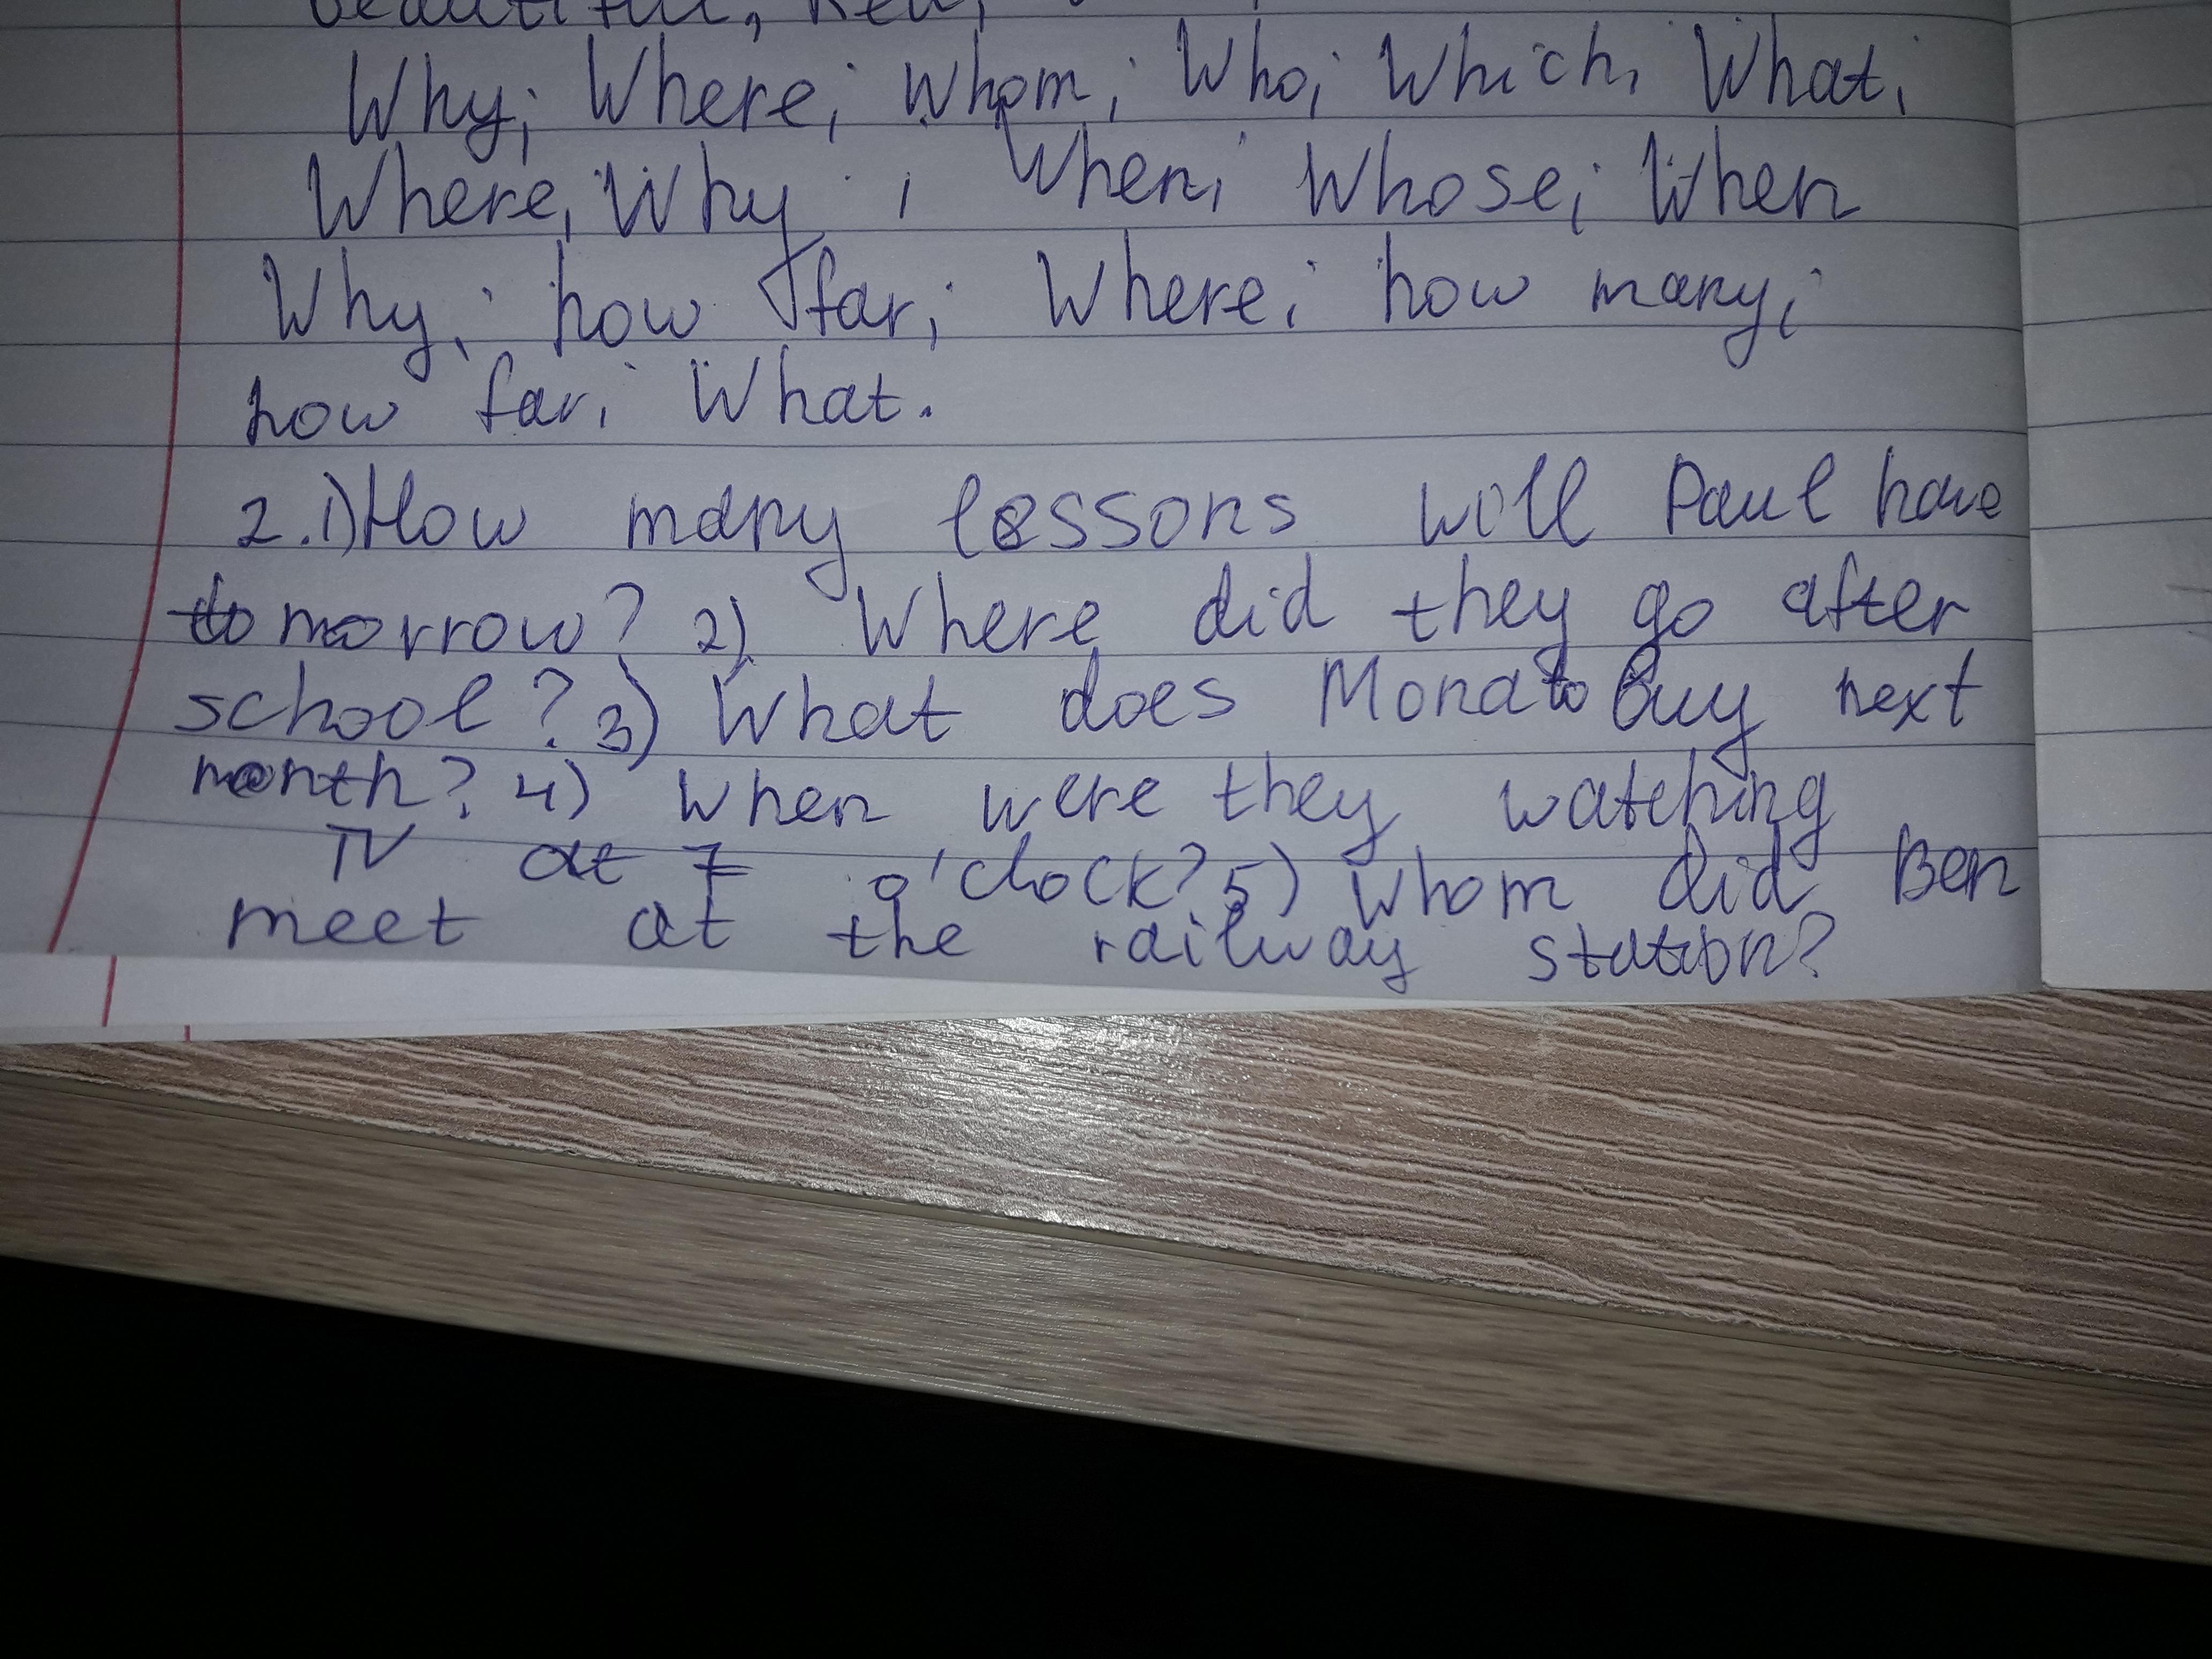 beautiful,
Why; Where; Whom; Who; Which; What;
Where, Why; When; Whose; When
Why; how far; Where; how many;
how far; What.
2.1) How many lessons will Paul have
tomorrow? 2) Where did they go after
school? 3) What does Mona to buy next
month? 4) When were they watching
TV at 7 o'clock? 5) Whom did Ben
meet at the railway station?